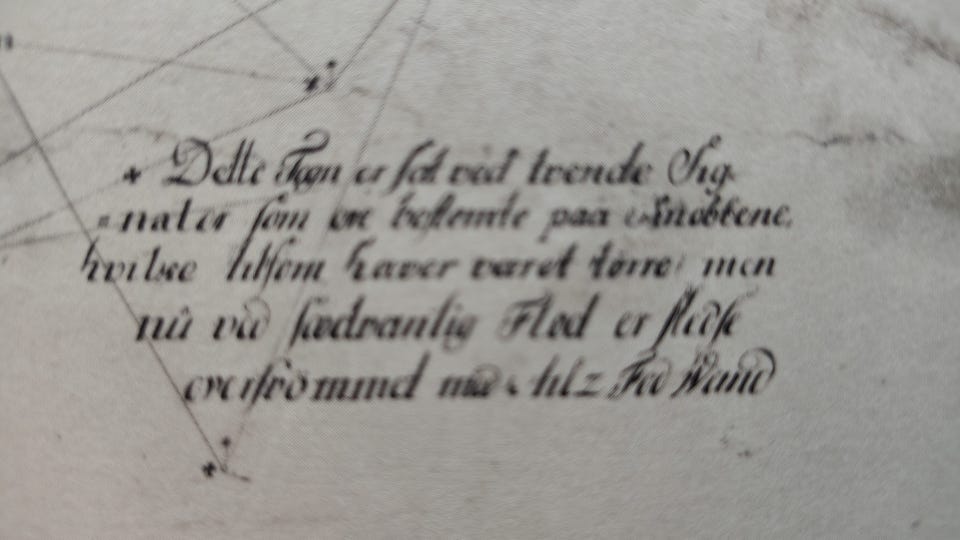 * Dette Tegn er sat ved trende Sig-
natur som ere bestemte paa Knobbene,
hvilke tilsem haver været törre, men
nû vid sædvanlig Flod er stedse
overströmmed med 1 til 2 Fod Wand